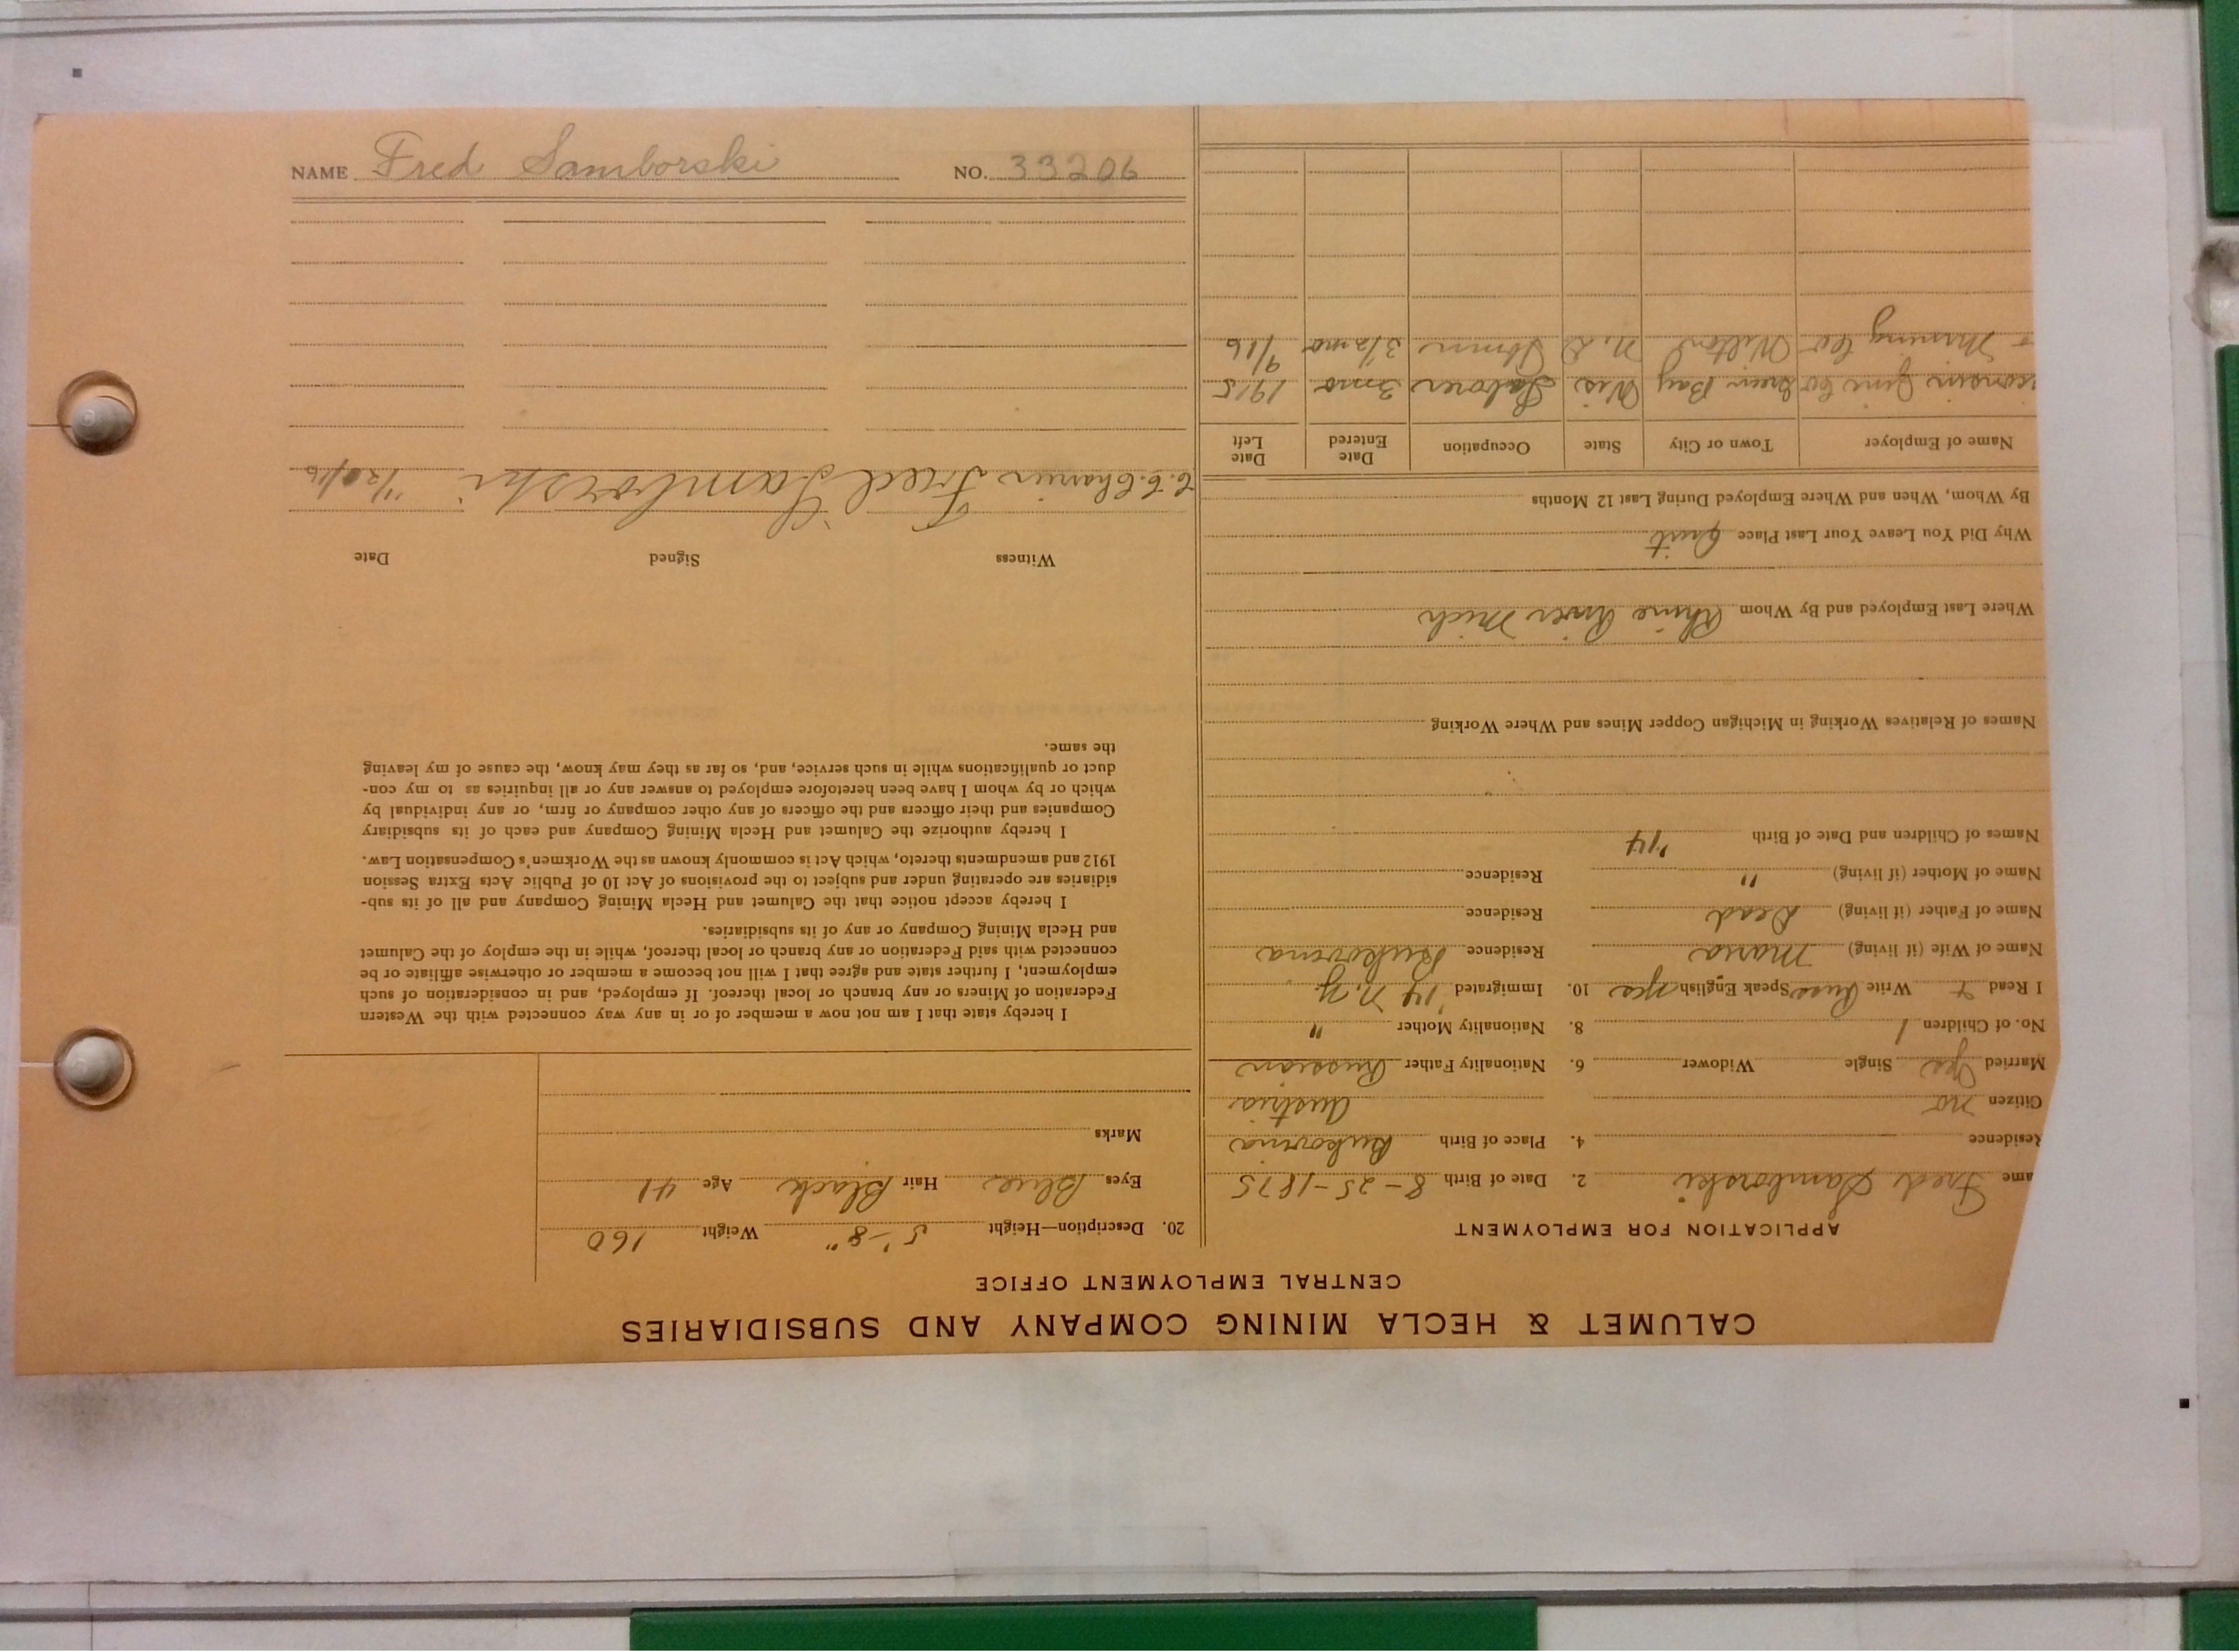 NAME Fred Samborski NO. 33206
CALUMET & HECLA MINING COMPANY AND SUBSIDIARIES
CENTRAL EMPLOYMENT OFFICE
APPLICATION FOR EMPLOYMENT
ame Fred Samborski 2. Date of Birth 8-25-1875
Residence 4. Place of Birth Bukovina
Citizen no Austria
Married Yes Single Widower 6. Nationality Father Russian
No. of Children 1 8. Nationality Mother "
I Read & Write Russ Speak English yes 10. Immigrated '14 N.Y.
Name of Wife (if living) Maria Residence Bukovina
Name of Father (if living) Dead Residence
Name of Mother (if living) " Residence
Names of Children and Date of Birth '14
Names of Relatives Working in Michigan Copper Mines and Where Working
Where Last Employed and By Whom River Mich
Why Did You Leave Your Last Place Quit
By Whom, When and Where Employed During Last 12 Months
Name of Employer Town or City State Occupation Date Entered Date Left
Co Green Bay Wis Laborer 3 mo 1915
Mining Co Wilton N.D. 3 1/2 mo 9/16
20. Description—Height 5'-8" Weight 160
Eyes Blue Hair Black Age 41
Marks
I hereby state that I am not now a member of or in any way connected with the Western
Federation of Miners or any branch or local thereof. If employed, and in consideration of such
employment, I further state and agree that I will not become a member or otherwise affiliate or be
connected with said Federation or any branch or local thereof, while in the employ of the Calumet
and Hecla Mining Company or any of its subsidiaries.
I hereby accept notice that the Calumet and Hecla Mining Company and all of its sub-
sidiaries are operating under and subject to the provisions of Act 10 of Public Acts Extra Session
1912 and amendments thereto, which Act is commonly known as the Workmen's Compensation Law.
I hereby authorize the Calumet and Hecla Mining Company and each of its subsidiary
Companies and their officers and the officers of any other company or firm, or any individual by
which or by whom I have been heretofore employed to answer any or all inquiries as to my con-
duct or qualifications while in such service, and, so far as they may know, the cause of my leaving
the same.
Witness Signed Date
Fred Samborski 11/20/16